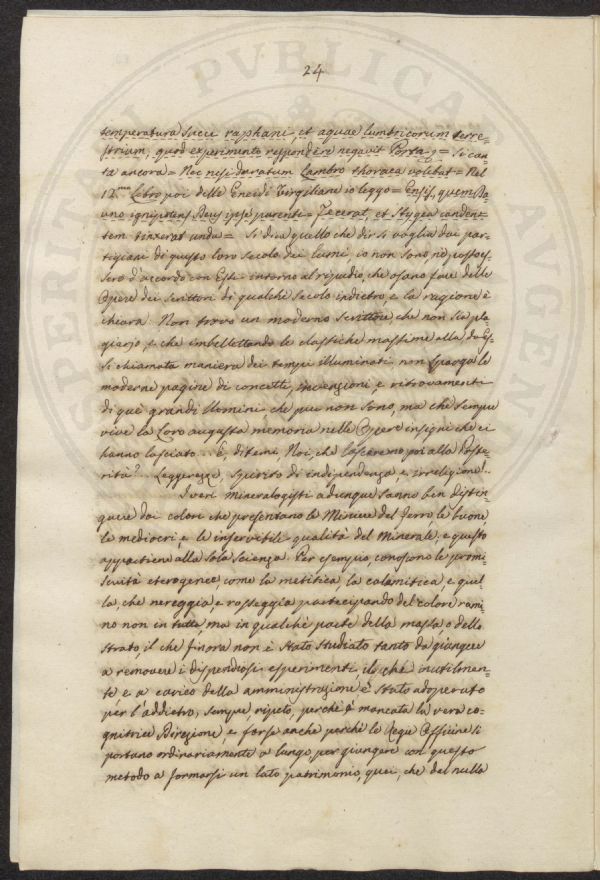 24
temperatura succi raphani, et aquae lumbricorum terre=
strium, quod experimento respondere negavit Porta = Si can=
ta ancora = Nec nisi duratum Lambro thoraca volebat = Nel
12.mo Libro poi delle Eneidi Virgiliane io leggo = Ensis, quem Da
uno ignipotens Deus ipse parenti = Fecerat, et Stygia canden=
tem tinxerat unda = Si dica quello che dir si voglia dai par=
tigiani di questo loro Secolo dei lumi, io non sono, nò,
d'accordo con Essi intorno al ripudio, che osano fare delle
Opere dei Scrittori di qualche secolo indietro, e la ragione è
chiara. Non trovo un moderno Scrittore che non sia pla=
giario, e che imbellettando le classiche massime alla
si chiamata maniera dei tempi illuminati non sparga le
moderne pagine di concetti, invenzioni, e ritrovamenti
di que' grandi Uomini, che piu non sono, ma che sempre
vive la Loro augusta memoria nelle Opere insigni che ci
hanno lasciato... E, ditemi, Noi, che lasceremo poi alla Poste=
rità?... Leggerezze, spirito di indipendenza, e irreligione!..
I veri mineralogisti adunque sanno ben distin=
guere dai colori che presentano le Miniere del ferro, le buone,
le mediocri, e le inservibili qualità del Minerale, e questo
appartiene alla sola Scienza. Per esempio, conoscono le promi=
scuità eterogenee, come la calamitica, e quel=
la, che nereggia, e rosseggia partecipando del colore rami=
no non in tutta, ma in qualche parte della massa, o dello
strato, il che finora non è stato studiato tanto da giungere
a removere i dispendiosi esperimenti, il che inutilmen=
te, e a carico della amministrazione è stato adoperato
per l'addietro, sempre, ripeto, perchè è mancata la vera co=
gnitrice Direzione, e forse anche perchè le Regie Officine si
portano ordinariamente a lungo, per giungere con questo
metodo a formarsi un lato patrimonio, quei, che dal nulla